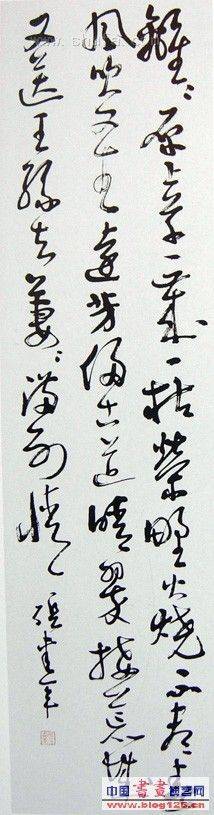 離〻原上草一歲一枯榮野火燒不盡春
風吹又生遠芳侵古道晴翠接荒城
又送王孫去萋〻滿別情
中国書畫艺网
www.blog125.cn